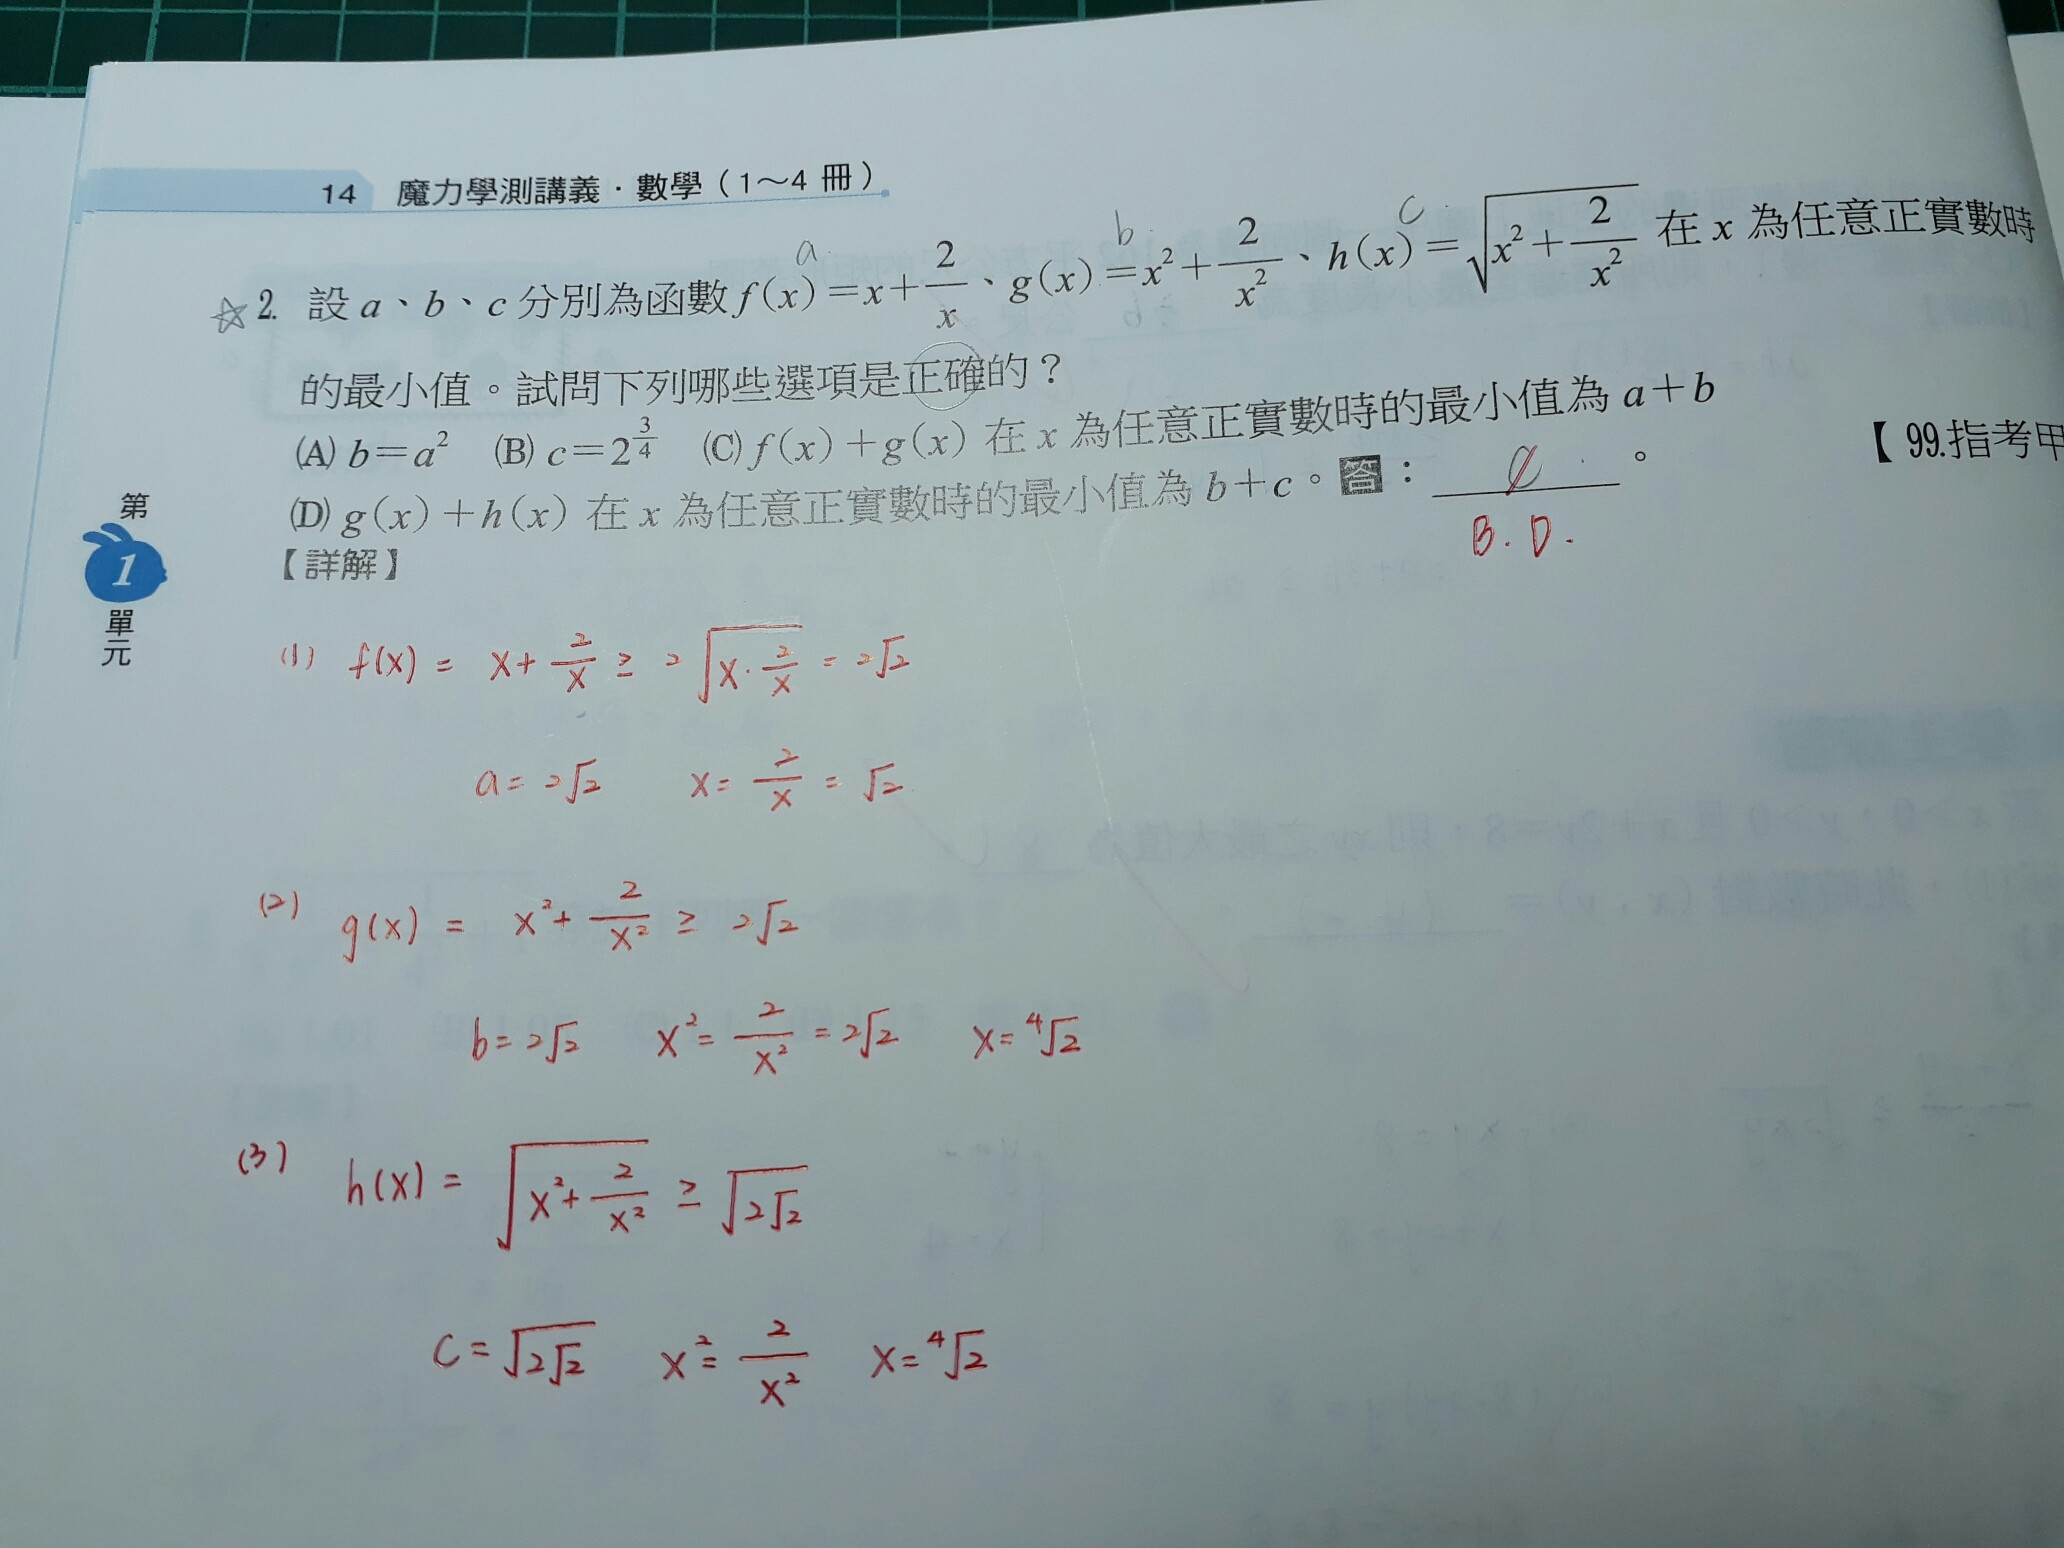 14 魔力學測講義·數學(1～4 冊)
a b c
☆ 2. 設 a、b、c 分別為函數 f(x)=x+2/x、g(x)=x²+2/x²、h(x)=√(x²+2/x²) 在 x 為任意正實數時
的最小值。試問下列哪些選項是正確的？
(A) b=a² (B) c=2^(3/4) (C) f(x)+g(x) 在 x 為任意正實數時的最小值為 a+b
【99.指考甲
(D) g(x)+h(x) 在 x 為任意正實數時的最小值為 b+c。答：。
B.D.
【詳解】
第
1
單
元
(1) f(x) = x+2/x ≥ 2√(x·2/x) = 2√2
a=2√2 x=2/x=√2
(2) g(x) = x²+2/x² ≥ 2√2
b=2√2 x²=2/x²=2√2 x=⁴√2
(3) h(x) = √(x²+2/x²) ≥ √(2√2)
c=√(2√2) x²=2/x² x=⁴√2